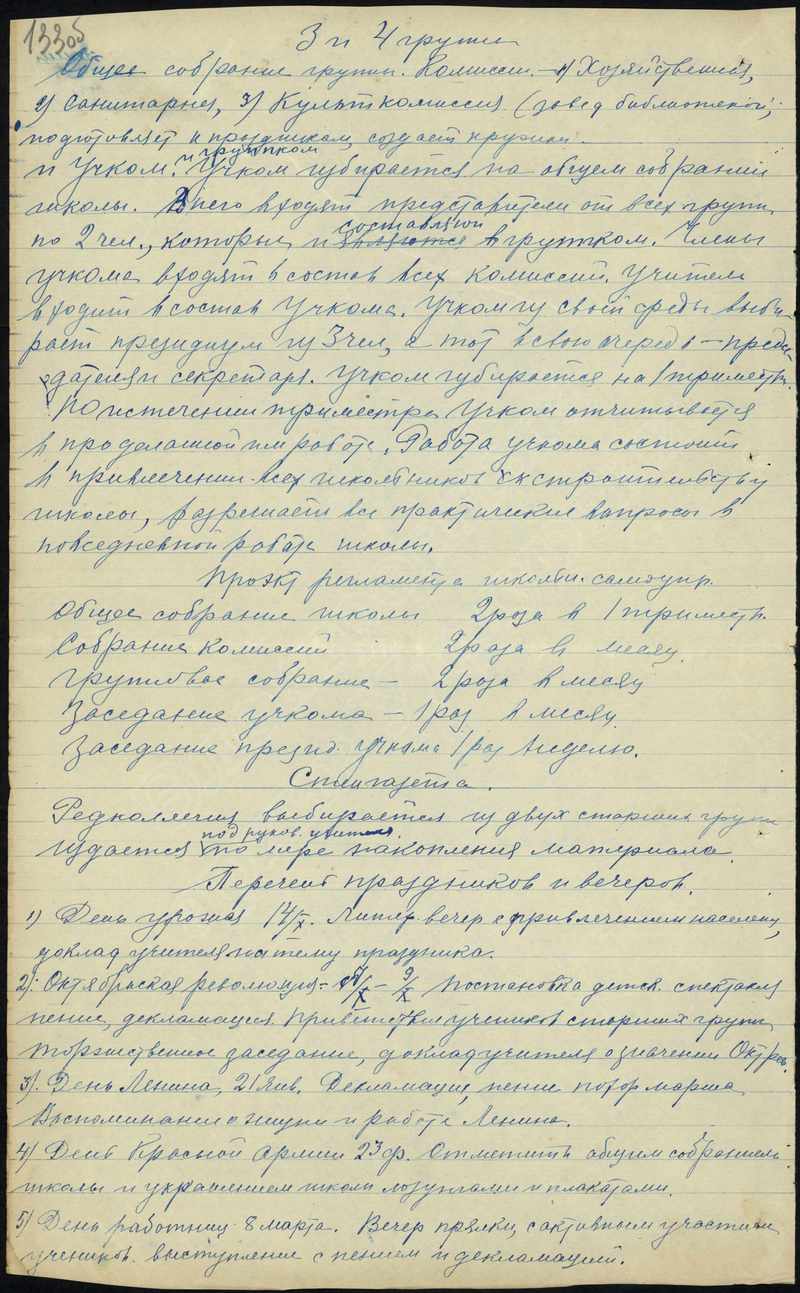 133об
3 и 4 группы
Общее собрание группы. Комиссии. — 1) Хозяйственная,
2) Санитарная, 3) Культкомиссия (завед библиотекой,
подготовляет к праздникам, создает кружки.
и группком
и Учком. Учком избирается на общем собрании
школы. В него входят представители от всех групп
составляют
по 2 чел., которые и являются в группком. Члены
учкома входят в состав всех комиссий. Учитель
входит в состав Учкома. Учком из своей среды выби-
рает президиум из 3 чел, а тот в свою очередь — предсе-
дателя и секретаря. Учком избирается на 1 триместр.
По истечении триместра Учком отчитывается
в проделанной им работе. Работа учкома состоит
в привлечении всех школьников к строительству
школы, разрешает все практические вопросы в
повседневной работе школы.
Проэкт регламента школьн. самоупр.
Общее собрание школы 2 раза в 1 триместр.
Собрание комиссий 2 раза в месяц
Групповое собрание — 2 раза в месяц
Заседание учкома — 1 раз в месяц
Заседание презид. учкома 1 раз в неделю.
Стенгазета.
Редколлегия выбирается из двух старших групп
под руков. учителя.
издается по мере накопления материала.
Перечень праздников и вечеров.
1) День урожая 14/X. Литер вечер с привлечением населения,
доклад учителя на тему праздника.
2). Октябрьская революция - /X - 9/X Постановка детск. спектакля
пение, декламация. Приветствия учеников старших групп,
торжественное заседание, доклад учителя о значении Окт. рев.
3). День Ленина, 21 янв. Декламация, пение похор марша
Воспоминание о жизни и работе Ленина.
4) День Красной армии 23 ф. Отметить общим собранием
школы и украшением школы лозунгами и плакатами.
5) День работниц 8 марта. Вечер прялки, с активным участием
учеников. выступление с пением и декламацией.